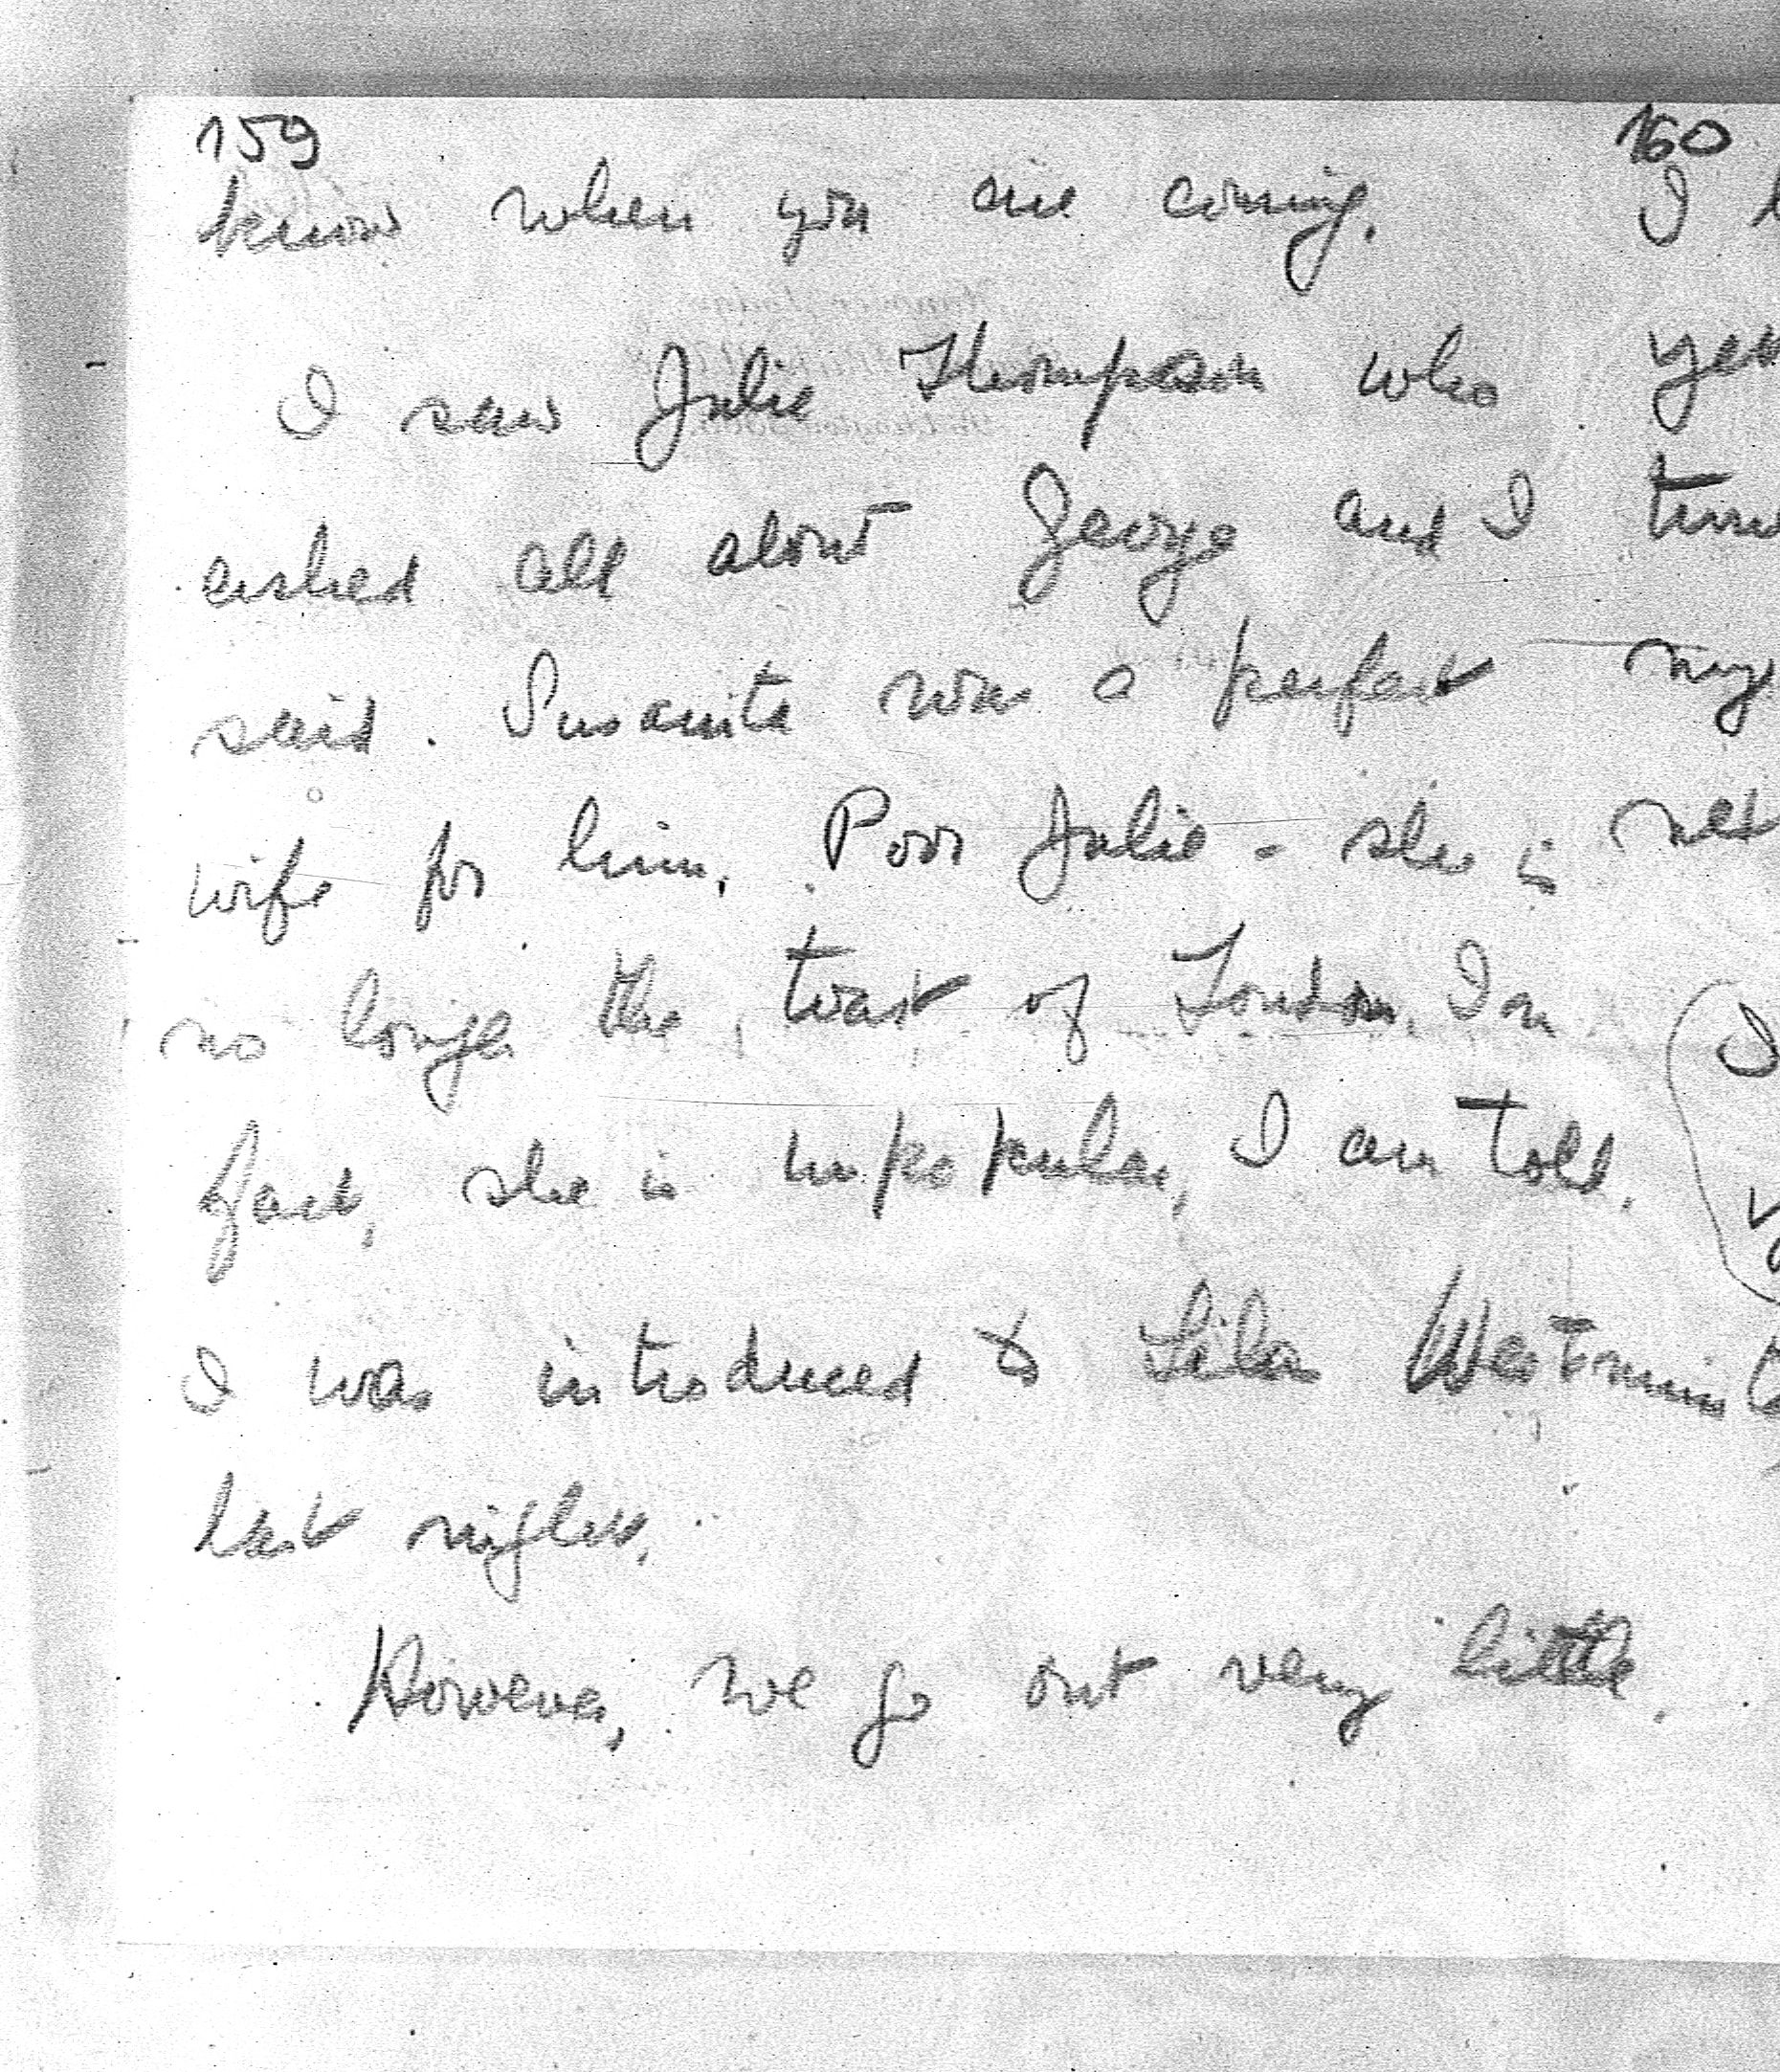 159
know when you are coming.
I saw Julie Thompson who
asked all about George and I
said. Susanita was a perfect
wife for him. Poor Julie - she is
no longer the toast of London. In
fact, she is unpopular, I am told.
I was introduced to Lila Westminster
last night.
However, we go out very little.
160
I
my